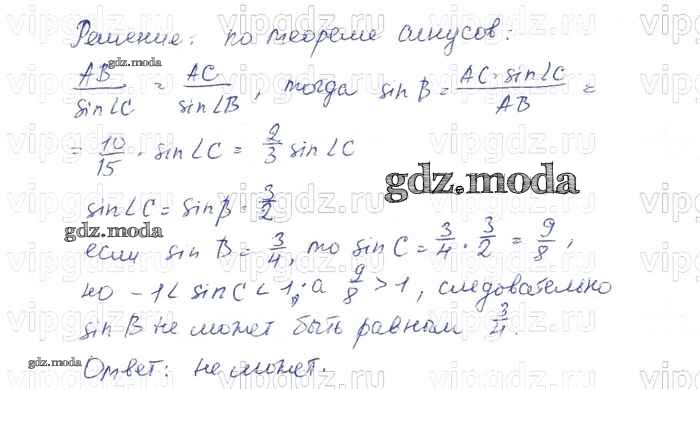 Решение: по теореме синусов:
AB/sin∠C = AC/sin∠B, тогда sin B = AC·sin∠C/AB =
= 10/15 · sin∠C = 2/3 sin∠C
sin∠C = sin B · 3/2
если sin B = 3/4, то sin C = 3/4 · 3/2 = 9/8,
но -1 < sin C < 1, а 9/8 > 1, следовательно
sin B не может быть равным 3/4.
Ответ: не может.
gdz.moda
gdz.moda
gdz.moda
gdz.moda
vipgdz.ru